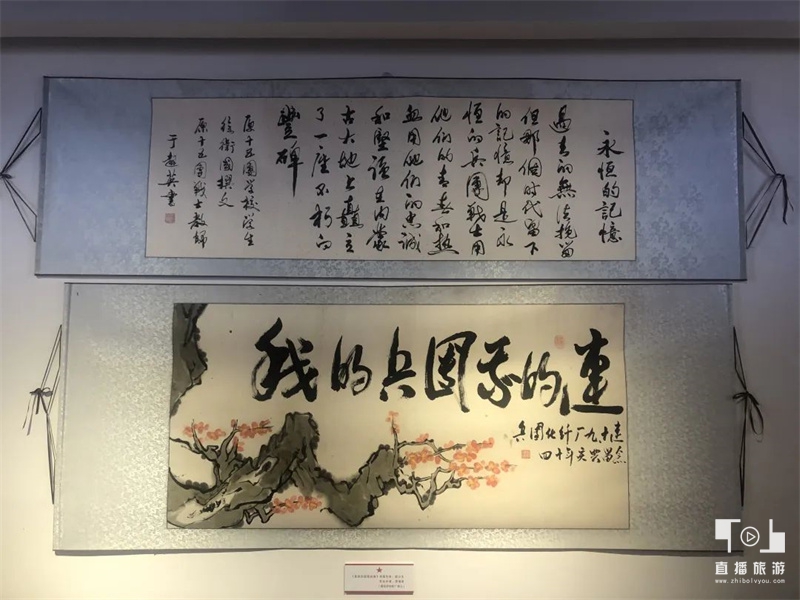 永恒的記憶
過去的無法挽留
但那個时代留下
的記憶却是永
恒的兵團戰士用
他們的青春和热
血用他們的忠誠
和堅强在内蒙
古大地上矗立
了一座不朽的
豐碑
原十五團学校学生
原十五團戰士教師
我的兵团我的連
兵團化纤厂九十連
四十年
直播旅游
www.zhibolvyou.com